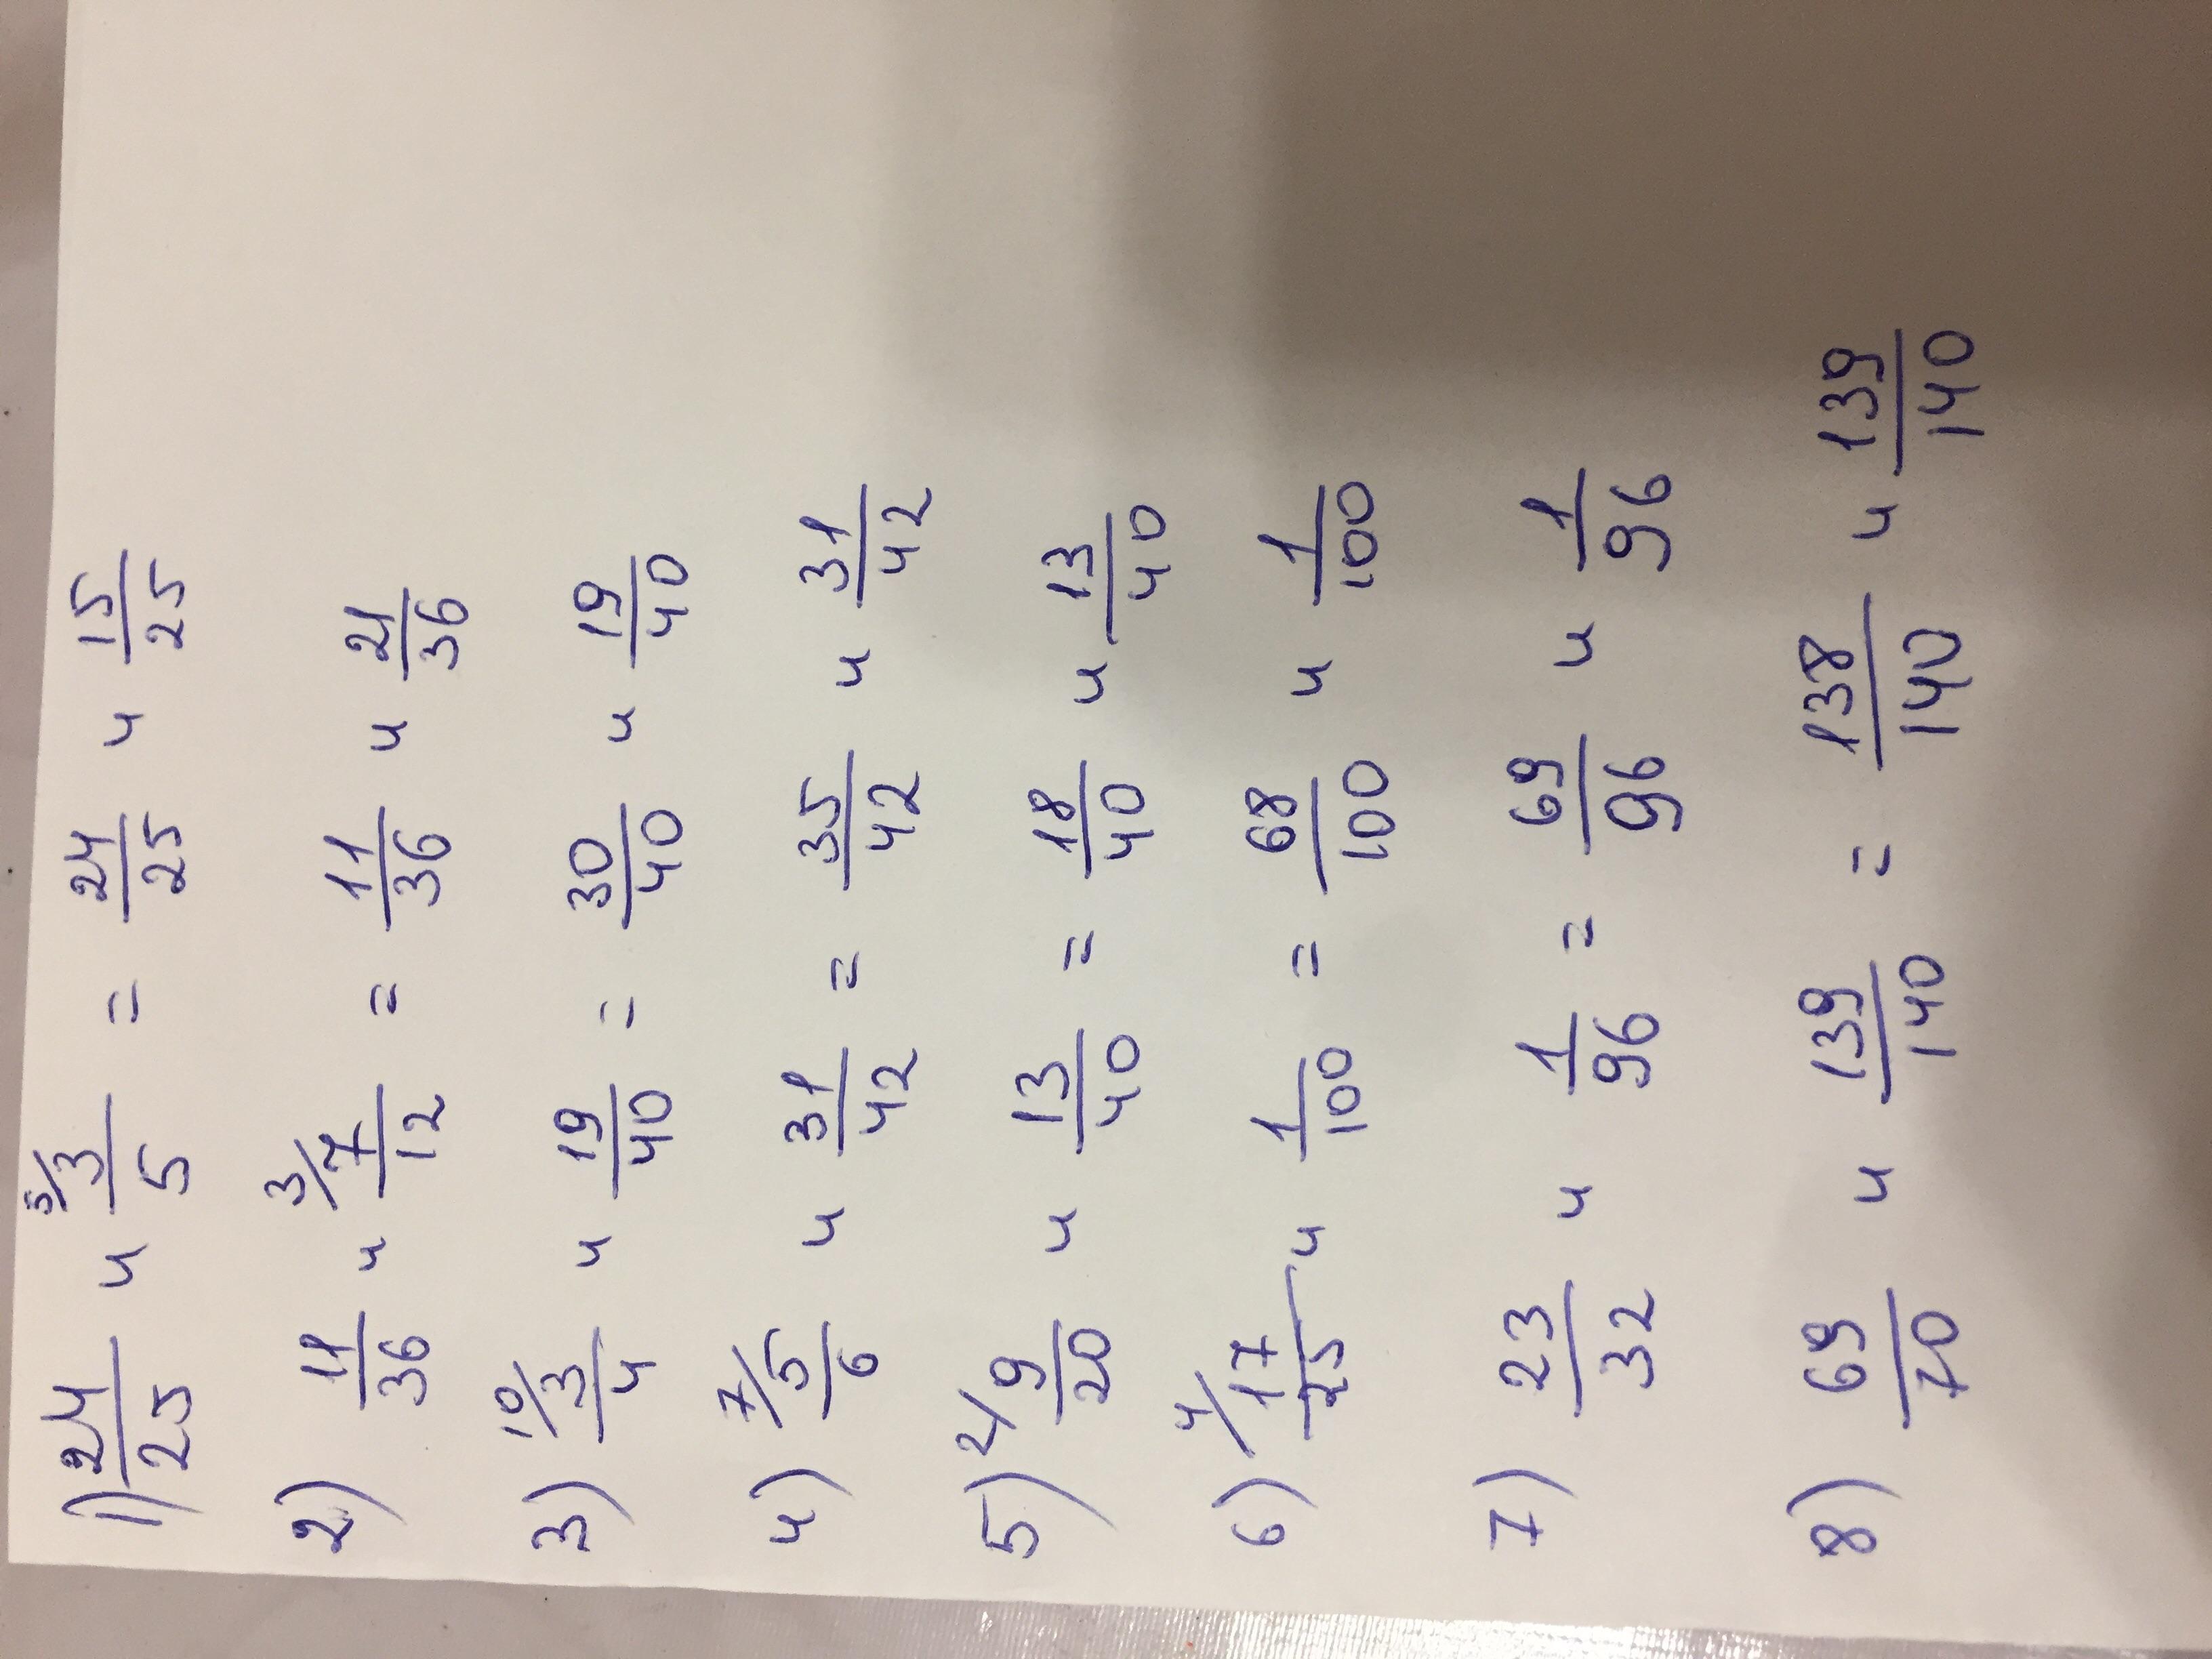 1) 24/25 и 5/ 3/5 = 24/25 и 15/25
2) 11/36 и 3/ 7/12 = 11/36 и 21/36
3) 10/ 3/4 и 19/40 = 30/40 и 19/40
4) 7/ 5/6 и 31/42 = 35/42 и 31/42
5) 2/ 9/20 и 13/40 = 18/40 и 13/40
6) 4/ 17/25 и 1/100 = 68/100 и 1/100
7) 23/32 и 1/96 = 69/96 и 1/96
8) 69/70 и 139/140 = 138/140 и 139/140